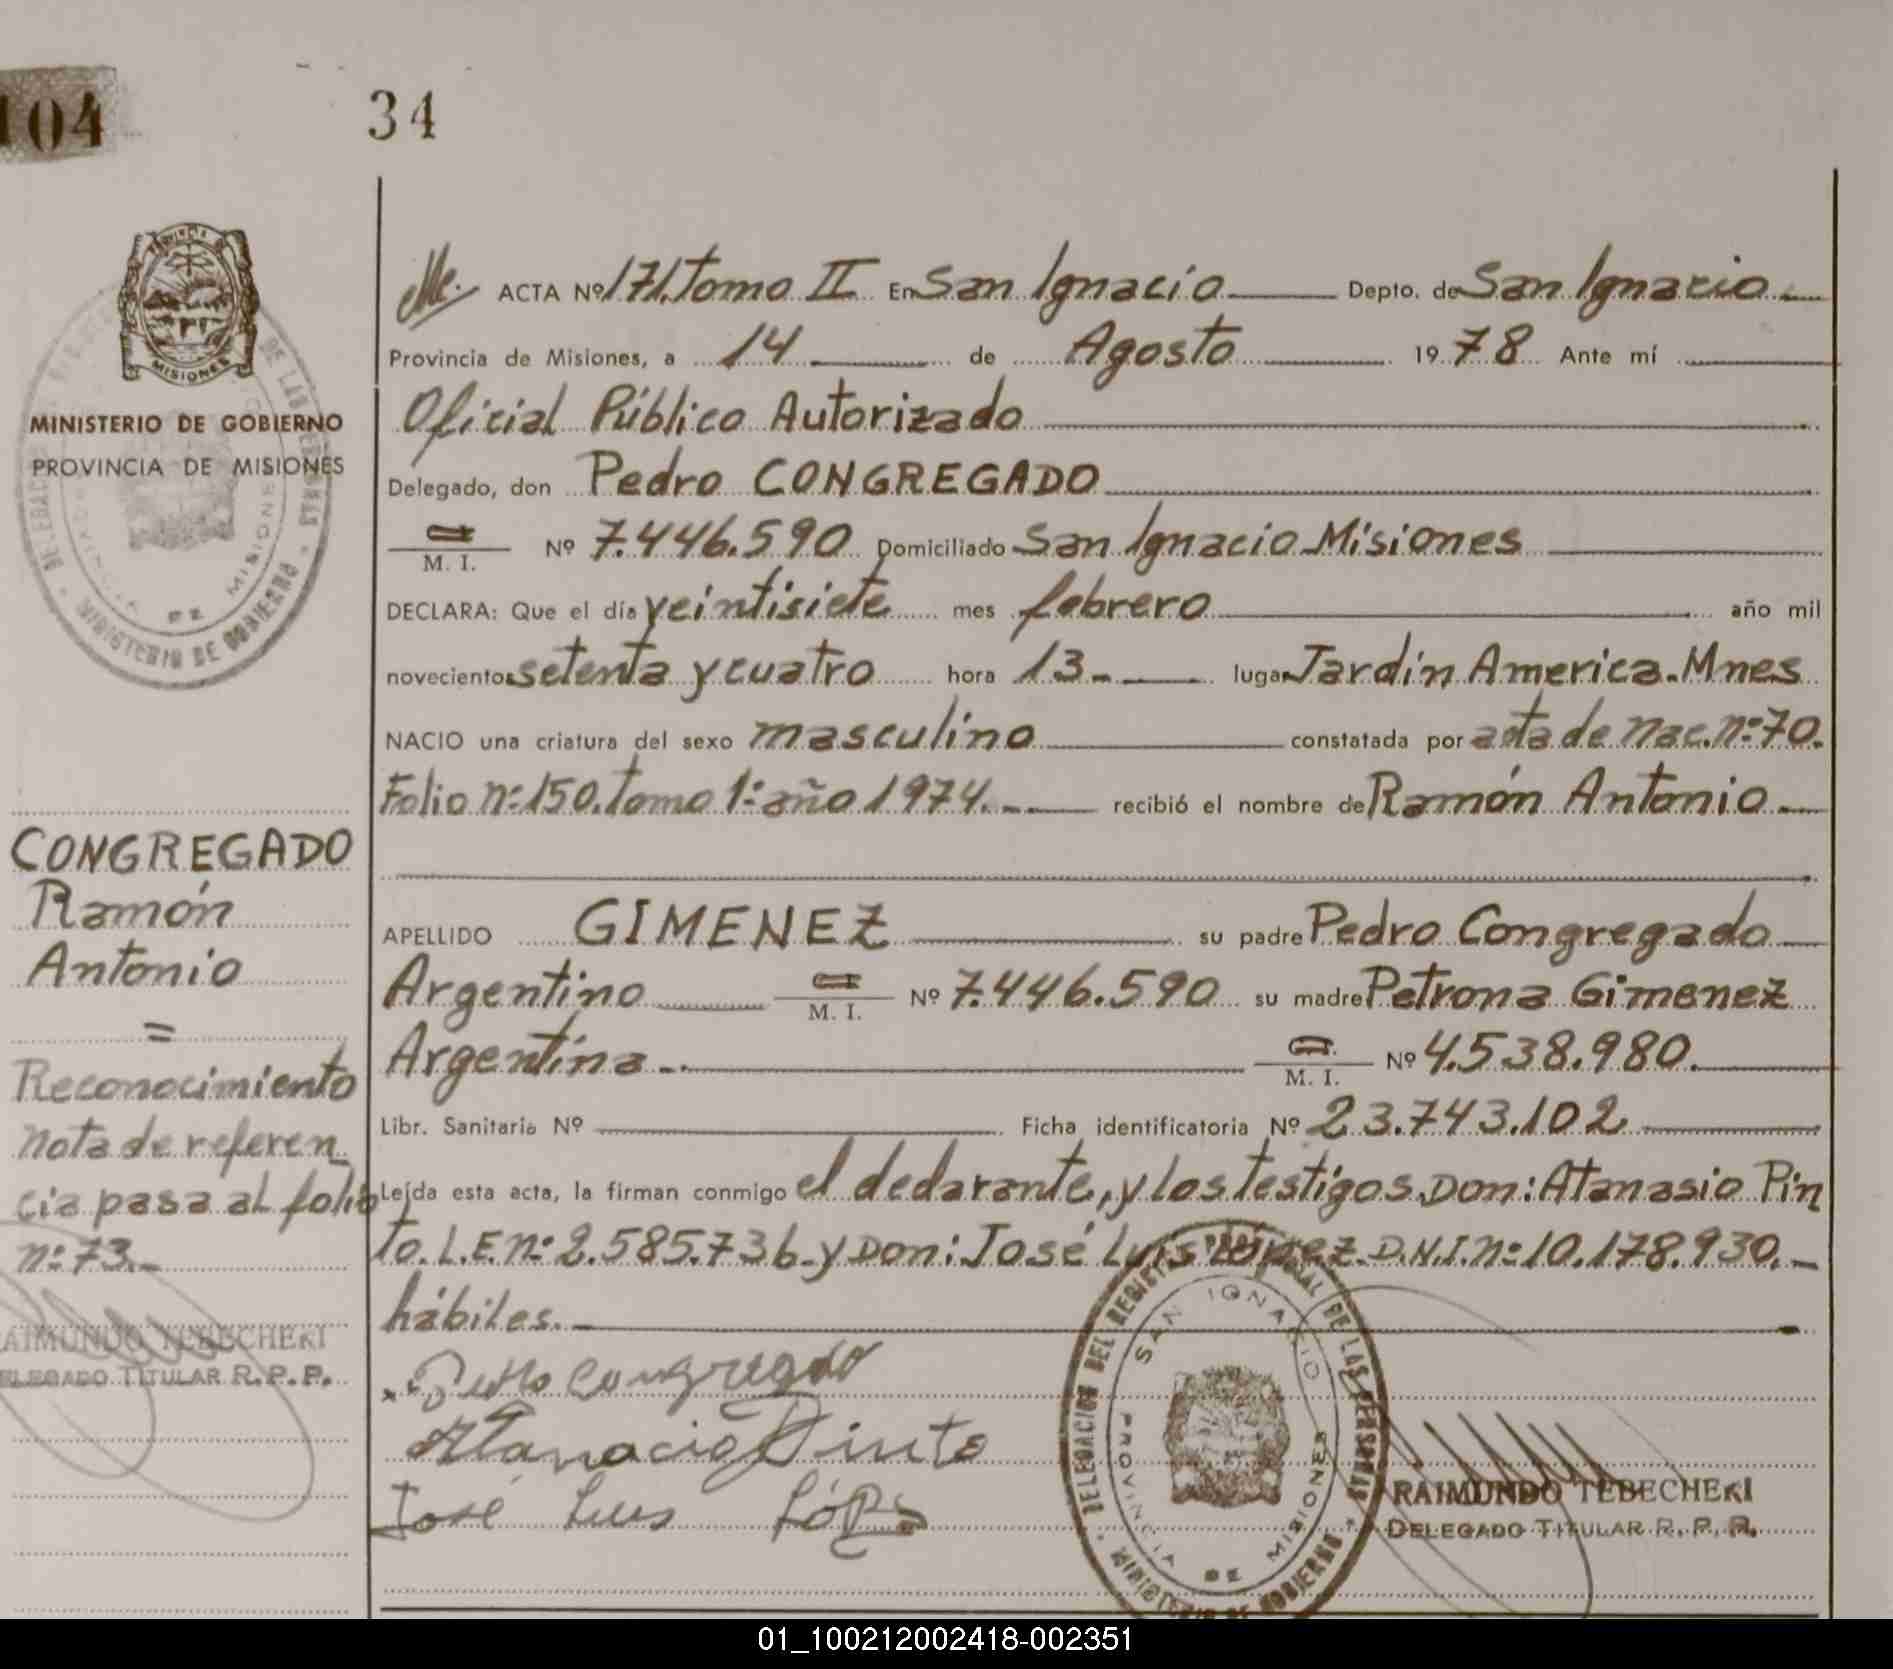 104
34
ACTA Nº 171. Tomo II En San Ignacio Depto. de San Ignacio
Provincia de Misiones, a 14 de Agosto 1978 Ante mí
Oficial Público Autorizado
Delegado, don Pedro CONGREGADO
M. I. Nº 7.446.590 Domiciliado San Ignacio Misiones
DECLARA: Que el día veintisiete mes febrero año mil
novecientos setenta y cuatro hora 13.- lugar Jardín America. Mnes
NACIO una criatura del sexo masculino constatada por acta de nac. nº: 70.
Folio nº: 150. Tomo 1º: año 1974.- recibió el nombre de Ramón Antonio
APELLIDO GIMENEZ su padre Pedro Congregado
Argentino M. I. Nº 7.446.590 su madre Petrona Gimenez
Argentina.- M. I. Nº 4.538.980.
Libr. Sanitaria Nº Ficha identificatoria Nº 23.743.102
Leída esta acta, la firman conmigo el declarante, y los testigos Don: Atanasio Pin
to. L.E. nº: 2.585.736 y Don: José Luis Lopez. D.N.I. nº: 10.178.930.-
hábiles.-
Pedro Congregado
Atanacio Pinto
José Luis López
RAIMUNDO TEBECHERI
DELEGADO TITULAR R. P. P.
DELEGACION DEL REGISTRO PROVINCIAL DE LAS PERSONAS
MINISTERIO DE GOBIERNO
SAN IGNACIO
PROVINCIA DE MISIONES
PROVINCIA DE
MISIONES
MINISTERIO DE GOBIERNO
PROVINCIA DE MISIONES
DELEGACION DE LAS PERSONAS
MINISTERIO DE GOBIERNO
PROVINCIA DE MISIONES
CONGREGADO
Ramón
Antonio
=
Reconocimiento
nota de referen
cia pasa al folio
nº: 73.-
RAIMUNDO TEBECHERI
DELEGADO TITULAR R. P. P.
01_100212002418-002351